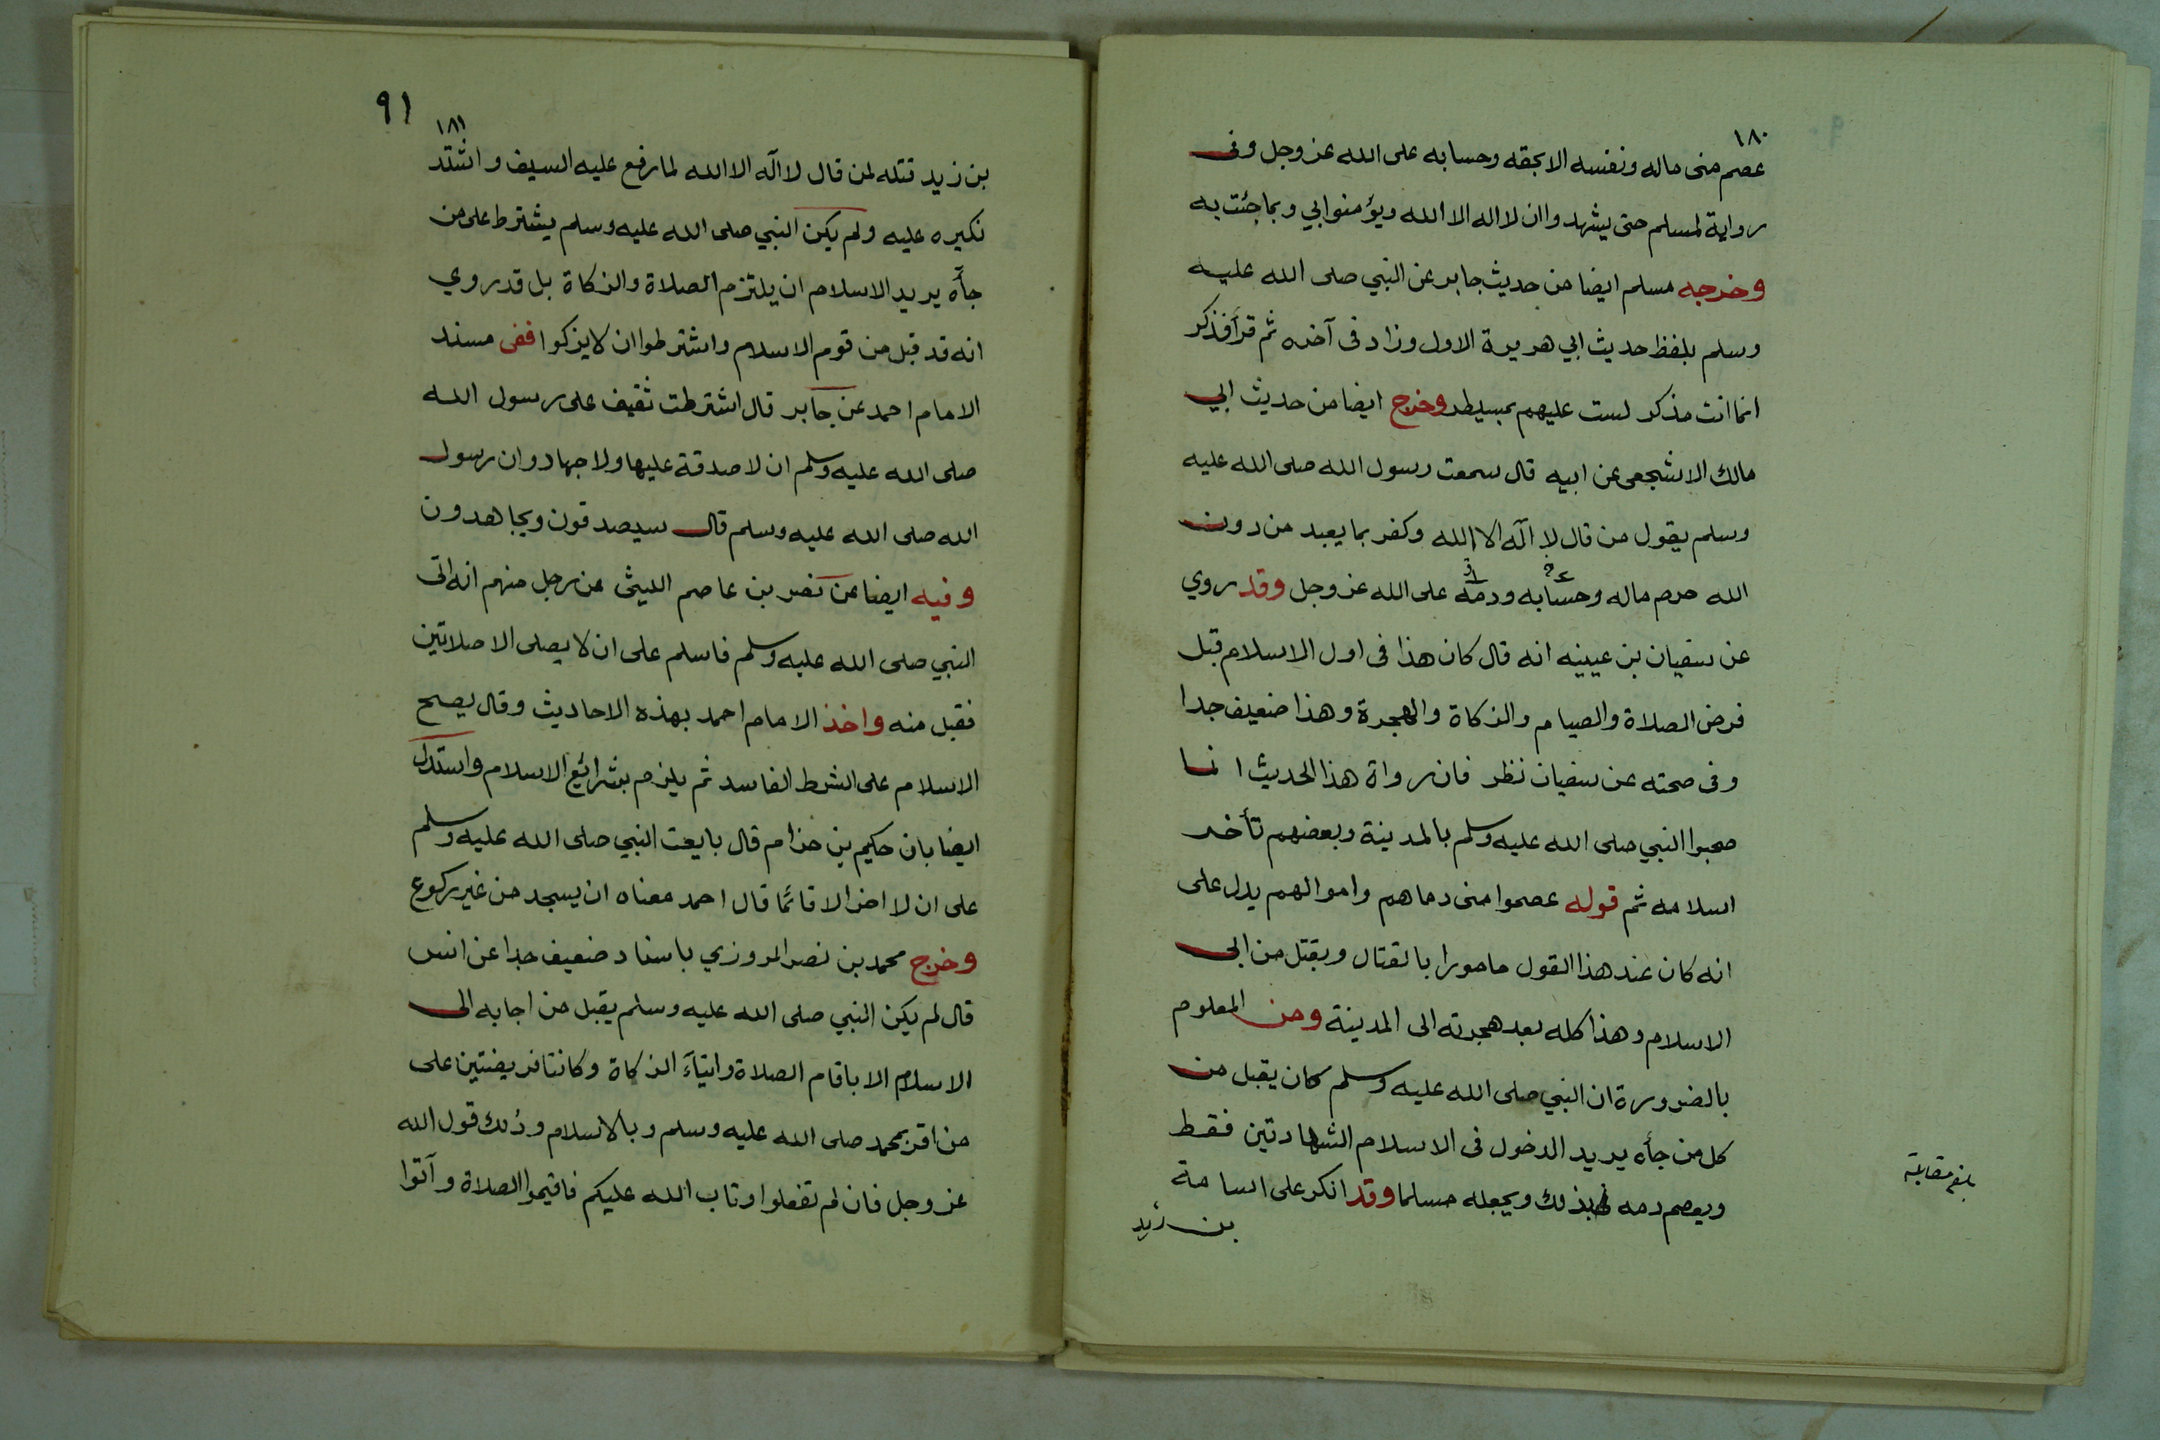 ١٨٠
عصم منى ماله ونفسه الا بحقه وحسابه على الله عز وجل وفى
رواية لمسلم حتى يشهدوا ان لا اله الا الله ويؤمنوا بي وبما جئت به
وخرجه مسلم ايضا من حديث جابر عن النبي صلى الله عليه
وسلم بلفظ حديث ابي هريرة الاول وزاد فى آخره ثم قرأ فذكر
انما انت مذكر لست عليهم بمسيطر وخرج ايضا من حديث ابي
مالك الاشجعى عن ابيه قال سمعت رسول الله صلى الله عليه
وسلم يقول من قال لا اله الا الله وكفر بما يعبد من دون
الله حرم ماله وحسابه ودمه على الله عز وجل وقد روي
عن سفيان بن عيينه انه قال كان هذا فى اول الاسلام قبل
فرض الصلاة والصيام والزكاة والهجرة وهذا ضعيف جدا
وفى صحته عن سفيان نظر فان رواة هذا الحديث انما
صحبوا النبي صلى الله عليه وسلم بالمدينة وبعضهم تأخر
اسلامه ثم قوله عصموا منى دماهم واموالهم يدل على
انه كان عند هذا القول مامورا بالقتال وبقتل من ابى
الاسلام وهذا كله بعد هجرته الى المدينة ومن المعلوم
بالضرورة ان النبي صلى الله عليه وسلم كان يقبل من
كل من جأه يريد الدخول فى الاسلام الشهادتين فقط
ويعصم دمه بذلك ويجعله مسلما وقد انكر على اسامة
بن زيد
بلغ مقابلة
٩١
١٨١
بن زيد قتله لمن قال لا اله الا الله لما رفع عليه السيف واشتد
نكيره عليه ولم يكن النبي صلى الله عليه وسلم يشترط على من
جأه يريد الاسلام ان يلتزم الصلاة والزكاة بل قد روي
انه قد قبل من قوم الاسلام واشترطوا ان لا يزكوا ففى مسند
الامام احمد عن جابر قال اشترطت ثقيف على رسول الله
صلى الله عليه وسلم ان لا صدقة عليها ولا جهاد وان رسول
الله صلى الله عليه وسلم قال سيصدقون ويجاهدون
وفيه ايضا عن نصر بن عاصم الليثى عن رجل منهم انه اتى
النبي صلى الله عليه وسلم فاسلم على ان لا يصلى الا صلاتين
فقبل منه واخذ الامام احمد بهذه الاحاديث وقال يصح
الاسلام على الشرط الفاسد ثم يلزم بشرائع الاسلام واستدل
ايضا بان حكيم بن حزام قال بايعت النبي صلى الله عليه وسلم
على ان لا اخر الا قائما قال احمد معناه ان يسجد من غير ركوع
وخرج محمد بن نصر المروزي باسناد ضعيف جدا عن انس
قال لم يكن النبي صلى الله عليه وسلم يقبل من اجابه الى
الاسلام الا باقام الصلاة وايتآء الزكاة وكانتا فريضتين على
من اقر بمحمد صلى الله عليه وسلم وبالاسلام وذلك قول الله
عز وجل فان لم تفعلوا وتاب الله عليكم فاقيموا الصلاة وآتوا